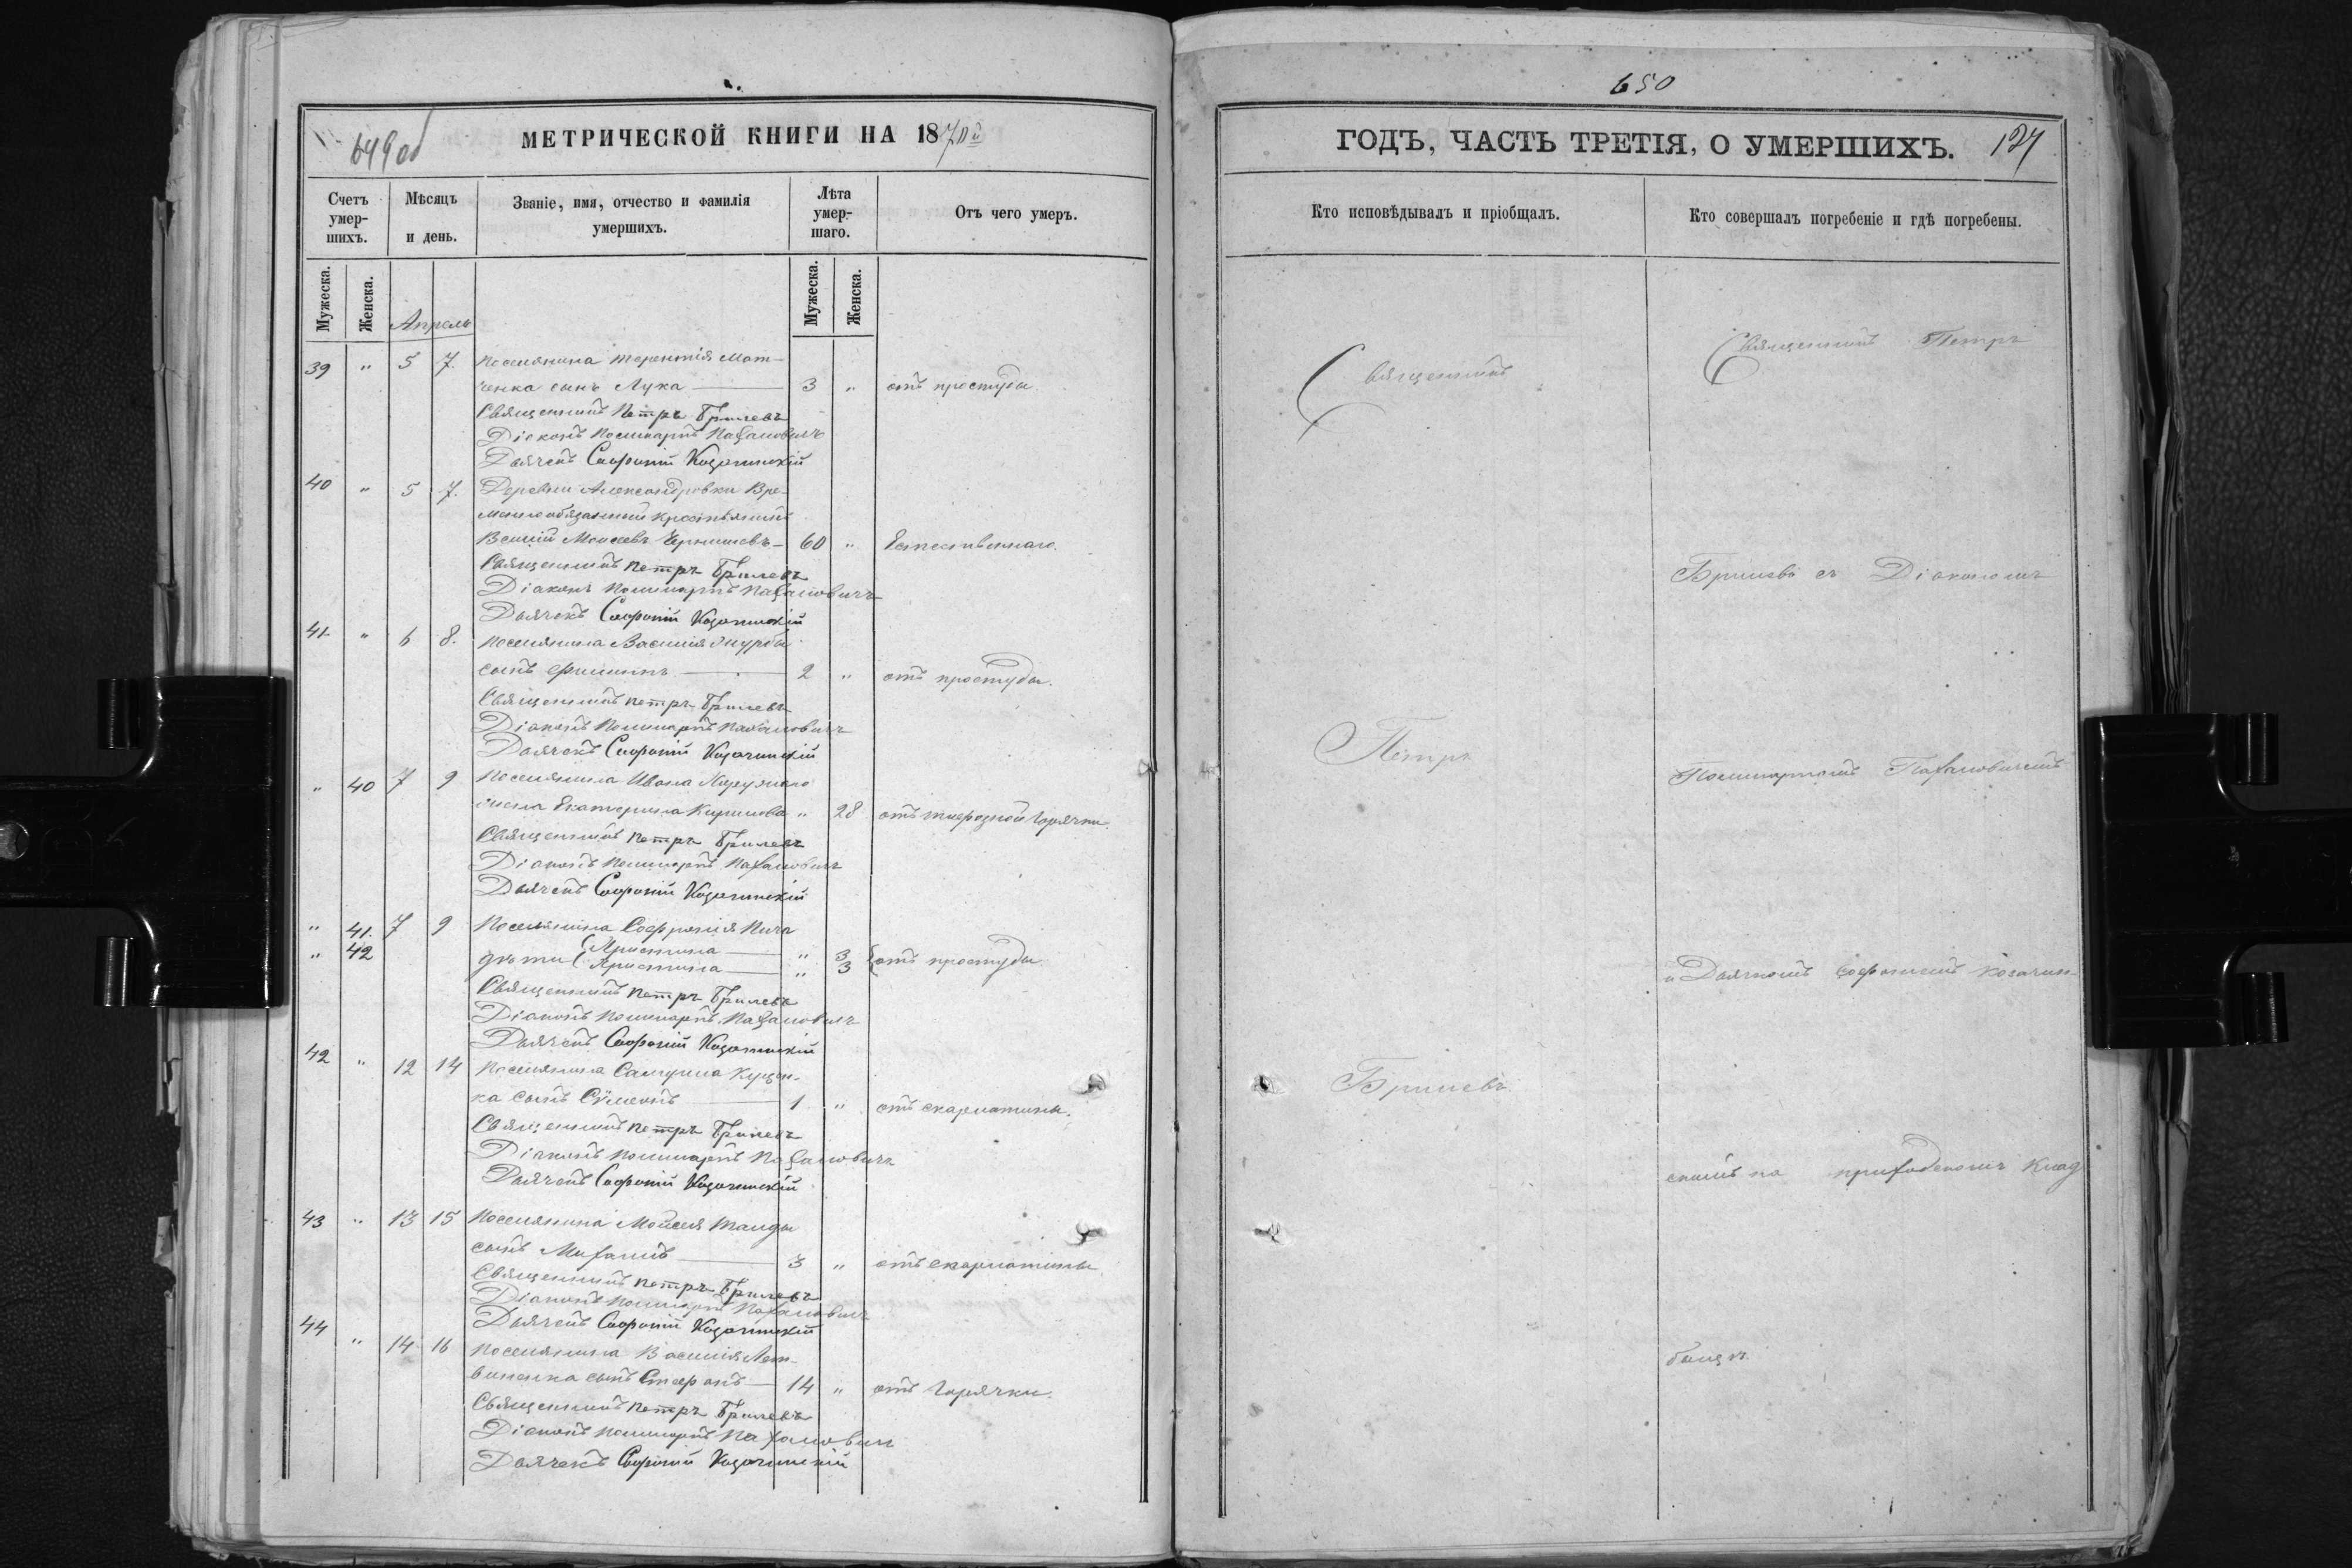 649 об
МЕТРИЧЕСКОЙ КНИГИ НА 1870й
Счетъ умер-шихъ.
Мѣсяцъ и день.
Званіе, имя, отчество и фамилія умершихъ.
Лѣта умер-шаго.
Отъ чего умеръ.
Мужеска. Женска. Мужеска. Женска.
Апрель
39 " 5 7. Поселянина Терентія Мот-
ченка сынъ Лука 3 " отъ простуды.
Священникъ Петръ Брилевъ
Діаконъ Поликарпъ Пахаловичъ
Дьячекъ Софроній Козачинскій
40 " 5 7. Деревни Александровки Вре-
менно обязанный крестьянинъ
Моисеевъ Чернышевъ 60 " Естественнаго.
Священникъ Петръ Брилевъ
Діаконъ Поликарпъ Пахаловичъ
Дьячекъ Софроній Козачинскій
41. " 6 8. Поселянина Василія
сынъ Филиппъ 2 " отъ простуды.
Священникъ Петръ Брилевъ
Діаконъ Поликарпъ Пахаловичъ
Дьячекъ Софроній Козачинскій
" 40 7 9 Поселянина Ивана
жена Екатерина Кирилова " 28 отъ горячки.
Священникъ Петръ Брилевъ
Діаконъ Поликарпъ Пахаловичъ
Дьячекъ Софроній Козачинскій
" 41. 7 9 Поселянина Софронія
" 42 дѣти Христина " 3
Христина " 3 отъ простуды.
Священникъ Петръ Брилевъ
Діаконъ Поликарпъ Пахаловичъ
Дьячекъ Софроній Козачинскій
42 " 12 14 Поселянина Самуила Куцен-
ка сынъ Сѵмеонъ 1 " отъ скарлатины.
Священникъ Петръ Брилевъ
Діаконъ Поликарпъ Пахаловичъ
Дьячекъ Софроній Козачинскій
43 " 13 15 Поселянина Мойсея
сынъ Михаилъ 3 " отъ скарлатины
Священникъ Петръ Брилевъ
Діаконъ Поликарпъ Пахаловичъ
Дьячекъ Софроній Козачинскій
44 " 14 16 Поселянина Василія Лит-
виненка сынъ Стефанъ 14 " отъ горячки.
Священникъ Петръ Брилевъ
Діаконъ Поликарпъ Пахаловичъ
Дьячекъ Софроній Козачинскій
650
ГОДЪ, ЧАСТЬ ТРЕТІЯ, О УМЕРШИХЪ. 127
Кто исповѣдывалъ и пріобщалъ.
Кто совершалъ погребеніе и гдѣ погребены.
Священникъ
Петръ
Брилевъ.
Священникъ Петръ
Брилевъ съ Діакономъ
Поликарпомъ Пахаловичемъ
и Дьячкомъ Софроніемъ Козачин-
скимъ на приходскомъ клад
бищѣ.